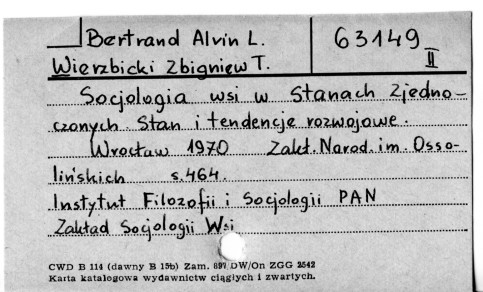 Bertrand Alvin L.
63149
II
Wierzbicki Zbigniew T.
Socjologia wsi w Stanach Zjedno-
czonych. Stan i tendencje rozwojowe.
Wrocław 1970 Zakł. Narod. im. Osso-
lińskich s. 464.
Instytut Filozofii i Socjologii PAN
Zakład Socjologii Wsi
CWD B 114 (dawny B 15b) Zam. 897/DW/On ZGG 2542
Karta katalogowa wydawnictw ciągłych i zwartych.